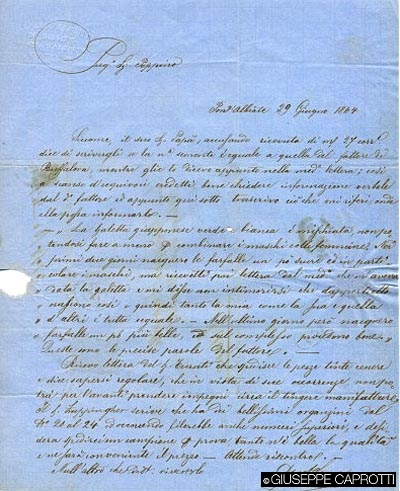 Preg.º Sr. Peppino
Pont' Albiate 29 Giugno 1864
Siccome il suo S. Papà, accusando ricevuta di m/ 27 corr.e
dice di scrivergli se la n.a semente è eguale a quella del fattore di
Buffalora, mentre glie lo dicevo appunto nella med.a lettera; così
a scanso d'equivoci credetti bene chiedere informazione verbale
dal d.o fattore ed appunto qui sotto trascrivo ciò che mi riferì onde
ella possa informarlo. —
— „ La Galetta giapponese verde e bianca è mischiata, non po-
tendosi fare a meno di combinare i maschi colle femmine. Nei
primi due giorni nacquero le farfalle un pò scure ed in parti-
colare i maschi, ma ricevetti poi lettera dal med.o che m'aveva
data la galetta e mi disse non intimorirsi che dappertutto
nascono così e quindi tanto la mia come la sua e quella
d'altri è tutta eguale. — Nell'ultimo giorno però nacquero
farfalle un pò più belle, e sul complesso promettono bene.
Queste sono le precise parole del fattore. —
Ricevo lettera del S. Cerutti che giudica le pezze tanto tenere
e dice sapersi regolare, che in vista di sue occorrenze non po-
trà per l'avanti prendere impegni circa il tingere manifatture.
Il S. scrive che ha dei bellissimi organzini dal
D.i 20 al 24. occorrendo filerebbe anche numeri superiori, e deside-
ra spedirci un campione di prova; tanto n'è bella la qualità
e ne farà conveniente il prezzo — Attende riscontro. —
Null'altro che distt. riverirla
© GIUSEPPE CAPROTTI